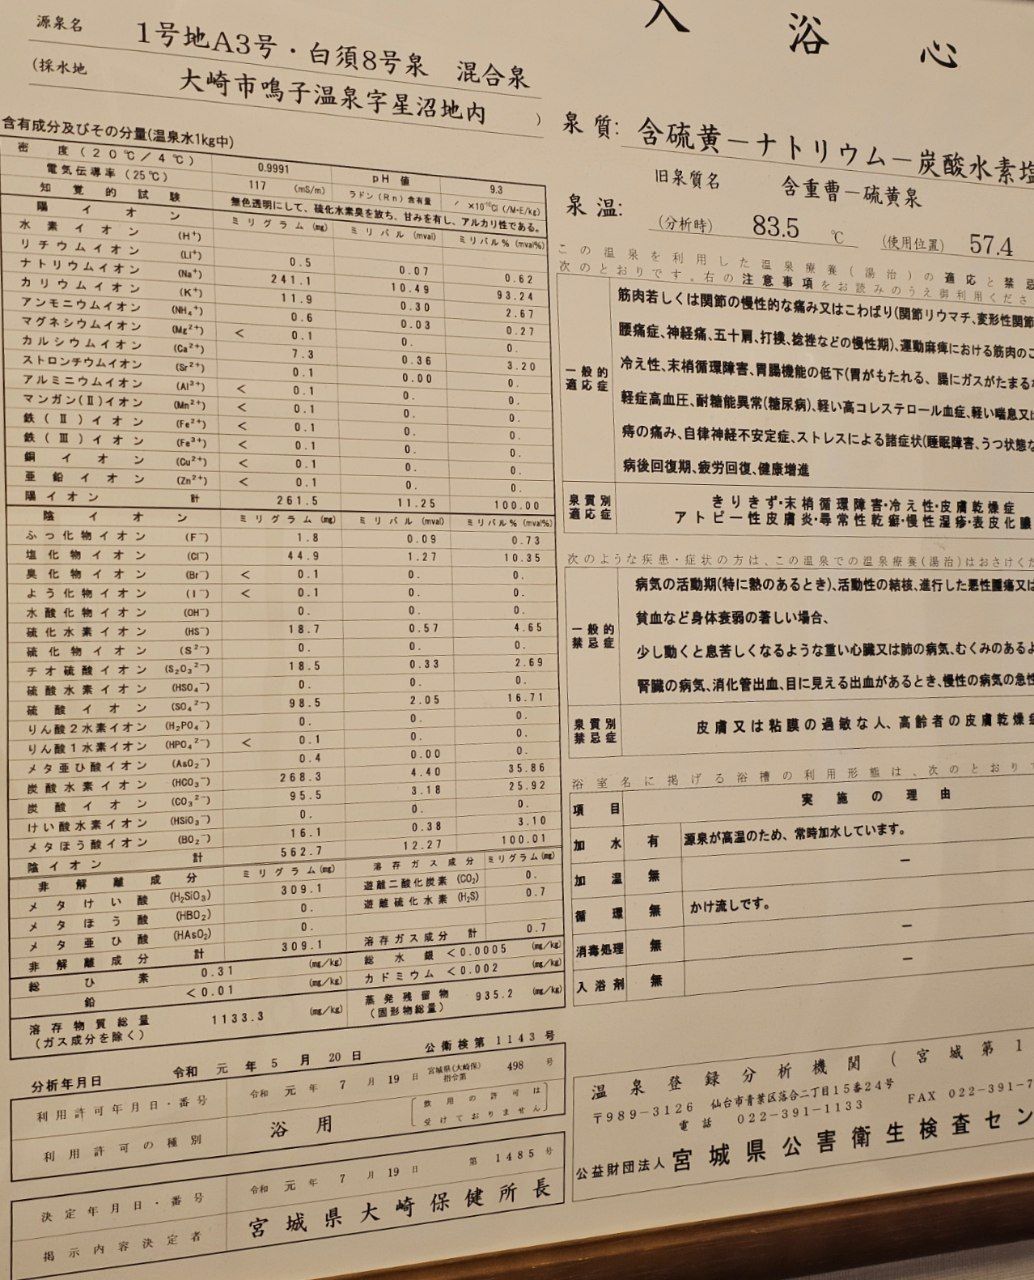 源泉名 1号地A3号・白須8号泉 混合泉
(採水地 大崎市鳴子温泉字星沼地内 )
含有成分及びその分量(温泉水1kg中)
密度(20℃/4℃) 0.9991 pH値 9.3
電気伝導率(25℃) 117 (mS/m) ラドン(Rn)含有量 / ×10⁻¹⁰Ci (/M・E/kg)
知覚的試験 無色透明にして、硫化水素臭を放ち、甘みを有し、アルカリ性である。
陽イオン ミリグラム(mg) ミリバル(mval) ミリバル%(mval%)
水素イオン (H⁺)
リチウムイオン (Li⁺) 0.5 0.07 0.62
ナトリウムイオン (Na⁺) 241.1 10.49 93.24
カリウムイオン (K⁺) 11.9 0.30 2.67
アンモニウムイオン (NH₄⁺) 0.6 0.03 0.27
マグネシウムイオン (Mg²⁺) < 0.1 0. 0.
カルシウムイオン (Ca²⁺) 7.3 0.36 3.20
ストロンチウムイオン (Sr²⁺) 0.1 0.00 0.
アルミニウムイオン (Al³⁺) < 0.1 0. 0.
マンガン(Ⅱ)イオン (Mn²⁺) < 0.1 0. 0.
鉄(Ⅱ)イオン (Fe²⁺) < 0.1 0. 0.
鉄(Ⅲ)イオン (Fe³⁺) < 0.1 0. 0.
銅イオン (Cu²⁺) < 0.1 0. 0.
亜鉛イオン (Zn²⁺) < 0.1 0. 0.
陽イオン計 261.5 11.25 100.00
陰イオン ミリグラム(mg) ミリバル(mval) ミリバル%(mval%)
ふっ化物イオン (F⁻) 1.8 0.09 0.73
塩化物イオン (Cl⁻) 44.9 1.27 10.35
臭化物イオン (Br⁻) < 0.1 0. 0.
よう化物イオン (I⁻) < 0.1 0. 0.
水酸化物イオン (OH⁻) 0. 0. 0.
硫化水素イオン (HS⁻) 18.7 0.57 4.65
硫化物イオン (S²⁻) 0. 0. 0.
チオ硫酸イオン (S₂O₃²⁻) 18.5 0.33 2.69
硫酸水素イオン (HSO₄⁻) 0. 0. 0.
硫酸イオン (SO₄²⁻) 98.5 2.05 16.71
りん酸2水素イオン (H₂PO₄⁻) 0. 0. 0.
りん酸1水素イオン (HPO₄²⁻) < 0.1 0. 0.
メタ亜ひ酸イオン (AsO₂⁻) 0.4 0.00 0.
炭酸水素イオン (HCO₃⁻) 268.3 4.40 35.86
炭酸イオン (CO₃²⁻) 95.5 3.18 25.92
けい酸水素イオン (HSiO₃⁻) 0. 0. 0.
メタほう酸イオン (BO₂⁻) 16.1 0.38 3.10
陰イオン計 562.7 12.27 100.01
非解離成分 ミリグラム(mg) 溶存ガス成分 ミリグラム(mg)
メタけい酸 (H₂SiO₃) 309.1 遊離二酸化炭素 (CO₂) 0.
メタほう酸 (HBO₂) 0. 遊離硫化水素 (H₂S) 0.7
メタ亜ひ酸 (HAsO₂) 0.
非解離成分計 309.1 溶存ガス成分計 0.7
総ひ素 0.31 (mg/kg) 総水銀 <0.0005 (mg/kg)
鉛 <0.01 (mg/kg) カドミウム <0.002 (mg/kg)
溶存物質総量 (ガス成分を除く) 1133.3 (mg/kg) 蒸発残留物 (固形物総量) 935.2 (mg/kg)
分析年月日 令和元年5月20日 公衛検第1143号
利用許可年月日・番号 令和元年7月19日 宮城県(大崎保)指令第 498 号
利用許可の種別 浴用 [飲用の許可は受けておりません]
決定年月日・番号 令和元年7月19日 第1485号
掲示内容決定者 宮城県大崎保健所長
入浴心
泉質: 含硫黄ーナトリウムー炭酸水素塩
旧泉質名 含重曹ー硫黄泉
泉温: (分析時) 83.5 ℃ (使用位置) 57.4
この温泉を利用した温泉療養(湯治)の適応と禁忌
次のとおりです。右の注意事項をお読みのうえ御利用くださ
一般的適応症
筋肉若しくは関節の慢性的な痛み又はこわばり(関節リウマチ、変形性関節
腰痛症、神経痛、五十肩、打撲、捻挫などの慢性期)、運動麻痺における筋肉のこ
冷え性、末梢循環障害、胃腸機能の低下(胃がもたれる、腸にガスがたまるな
軽症高血圧、耐糖能異常(糖尿病)、軽い高コレステロール血症、軽い喘息又は
痔の痛み、自律神経不安定症、ストレスによる諸症状(睡眠障害、うつ状態な
病後回復期、疲労回復、健康増進
泉質別適応症
きりきず・末梢循環障害・冷え性・皮膚乾燥症
アトピー性皮膚炎・尋常性乾癬・慢性湿疹・表皮化膿
次のような疾患・症状の方は、この温泉での温泉療養(湯治)はおさけくだ
一般的禁忌症
病気の活動期(特に熱のあるとき)、活動性の結核、進行した悪性腫瘍又は
貧血など身体衰弱の著しい場合、
少し動くと息苦しくなるような重い心臓又は肺の病気、むくみのあるよ
腎臓の病気、消化管出血、目に見える出血があるとき、慢性の病気の急性
泉質別禁忌症
皮膚又は粘膜の過敏な人、高齢者の皮膚乾燥症
浴室名に掲げる浴槽の利用形態は、次のとおりで
項目 実施の理由
加水 有 源泉が高温のため、常時加水しています。
加温 無 ー
循環 無 かけ流しです。
消毒処理 無 ー
入浴剤 無 ー
温泉登録分析機関(宮城第1
〒989-3126 仙台市青葉区落合二丁目15番24号
電話 022-391-1133 FAX 022-391-7
公益財団法人 宮城県公害衛生検査セン